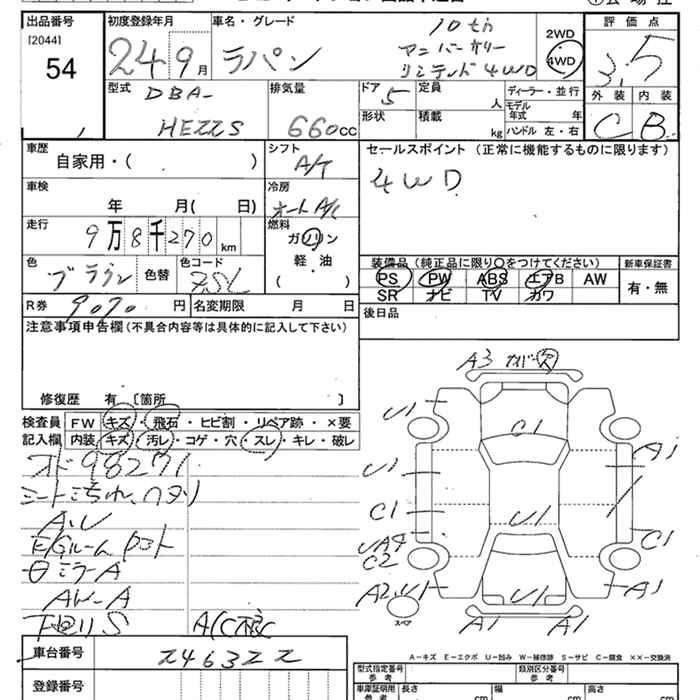 出品番号 初度登録年月 車名・グレード 評価点
[2044]
54
24 9月 ラパン
10th
アニバーサリー
リミテッド4WD
2WD
4WD
3.5
型式 DBA-
HE22S
排気量
660cc
ドア 5 定員 人
形状 積載 kg
ディーラー・並行
モデル年式 年
ハンドル 左・右
外装 内装
C B
車歴 自家用・( )
シフト
A/T
セールスポイント (正常に機能するものに限ります)
4WD
車検 年 月( 日)
冷房
オートA/C
走行
9万8千270km
燃料
ガソリン
軽・油
( )
色 ブラウン 色替 色コード ZSL
装備品 (純正品に限り○をつけてください) 新車保証書
PS PW ABS エアB AW 有・無
SR ナビ TV カワ
R券 9070円 名変期限 月 日
後日品
注意事項申告欄 (不具合内容等は具体的に記入して下さい)
修復歴 有 〔箇所 〕
検査員 FW キズ・飛石・ヒビ割・リペア跡・×要
記入欄 内装 キズ・汚レ・コゲ・穴・スレ・キレ・破レ
98271
A.U
E/Gルーム
ミラーA
S
A3
U1
C1
A1
U1
C1
U1
C1
C2
A2
U1
U1
A1
スペア
A1 A1
A−キズ E−エクボ U−凹み W−補修跡 S−サビ C−腐食 ××−交換済
車台番号 246322
登録番号
型式指定番号 類別区分番号
参考 参考
車庫証明用 長さ 幅 高さ
参考 cm cm cm